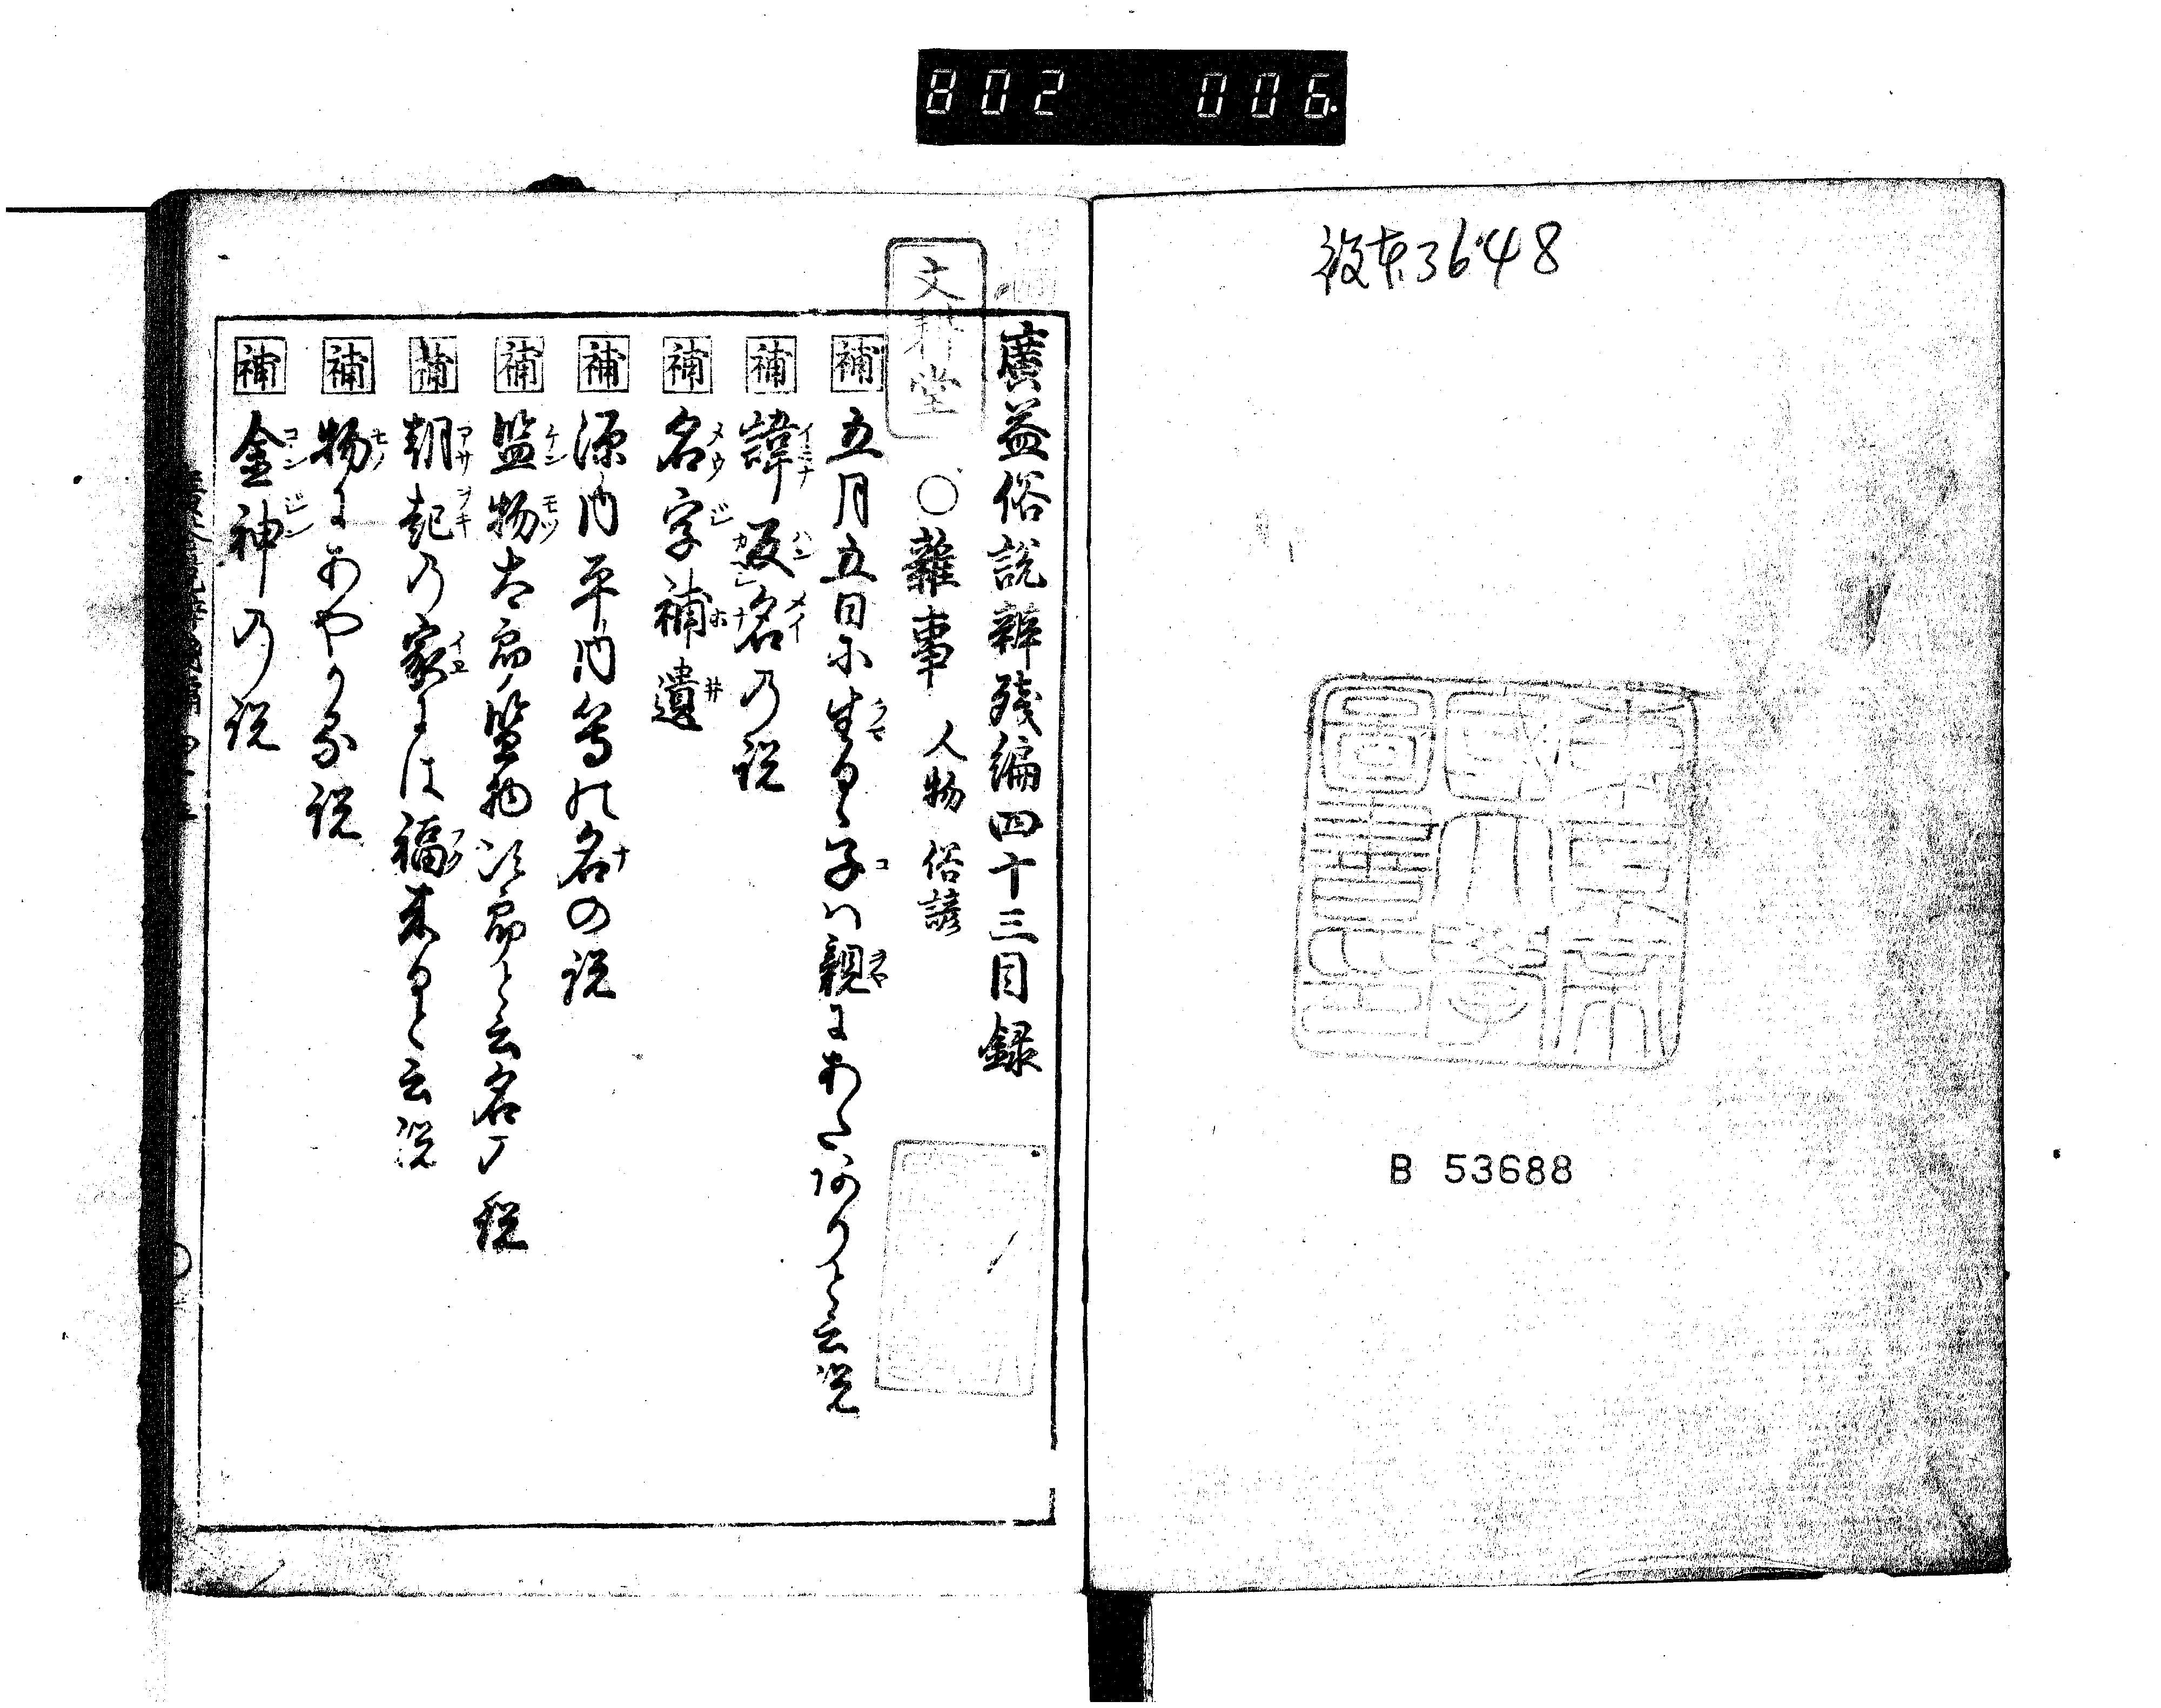 802 006
複東3648
B 53688
廣益俗說辨殘編四十三目録
文耕堂
○雜事 人物 俗諺
補 五月五日に生るゝ子ハ親にあたゝりと云説
補 諱仮名の説
補 名字補遺
補 源内平内等の名の説
補 監物太郎監物次郎と云名の説
補 朝起の家には福来ると云説
補 物にあやかる説
補 金神の説